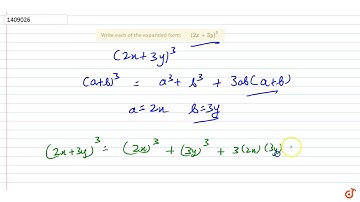 1409026
Write each of the expanded form: (2x + 3y)³
(2x+3y)³
(a+b)³ = a³ + b³ + 3ab(a+b)
a = 2x b = 3y
(2x+3y)³ = (2x)³ + (3y)³ + 3(2x)(3y)